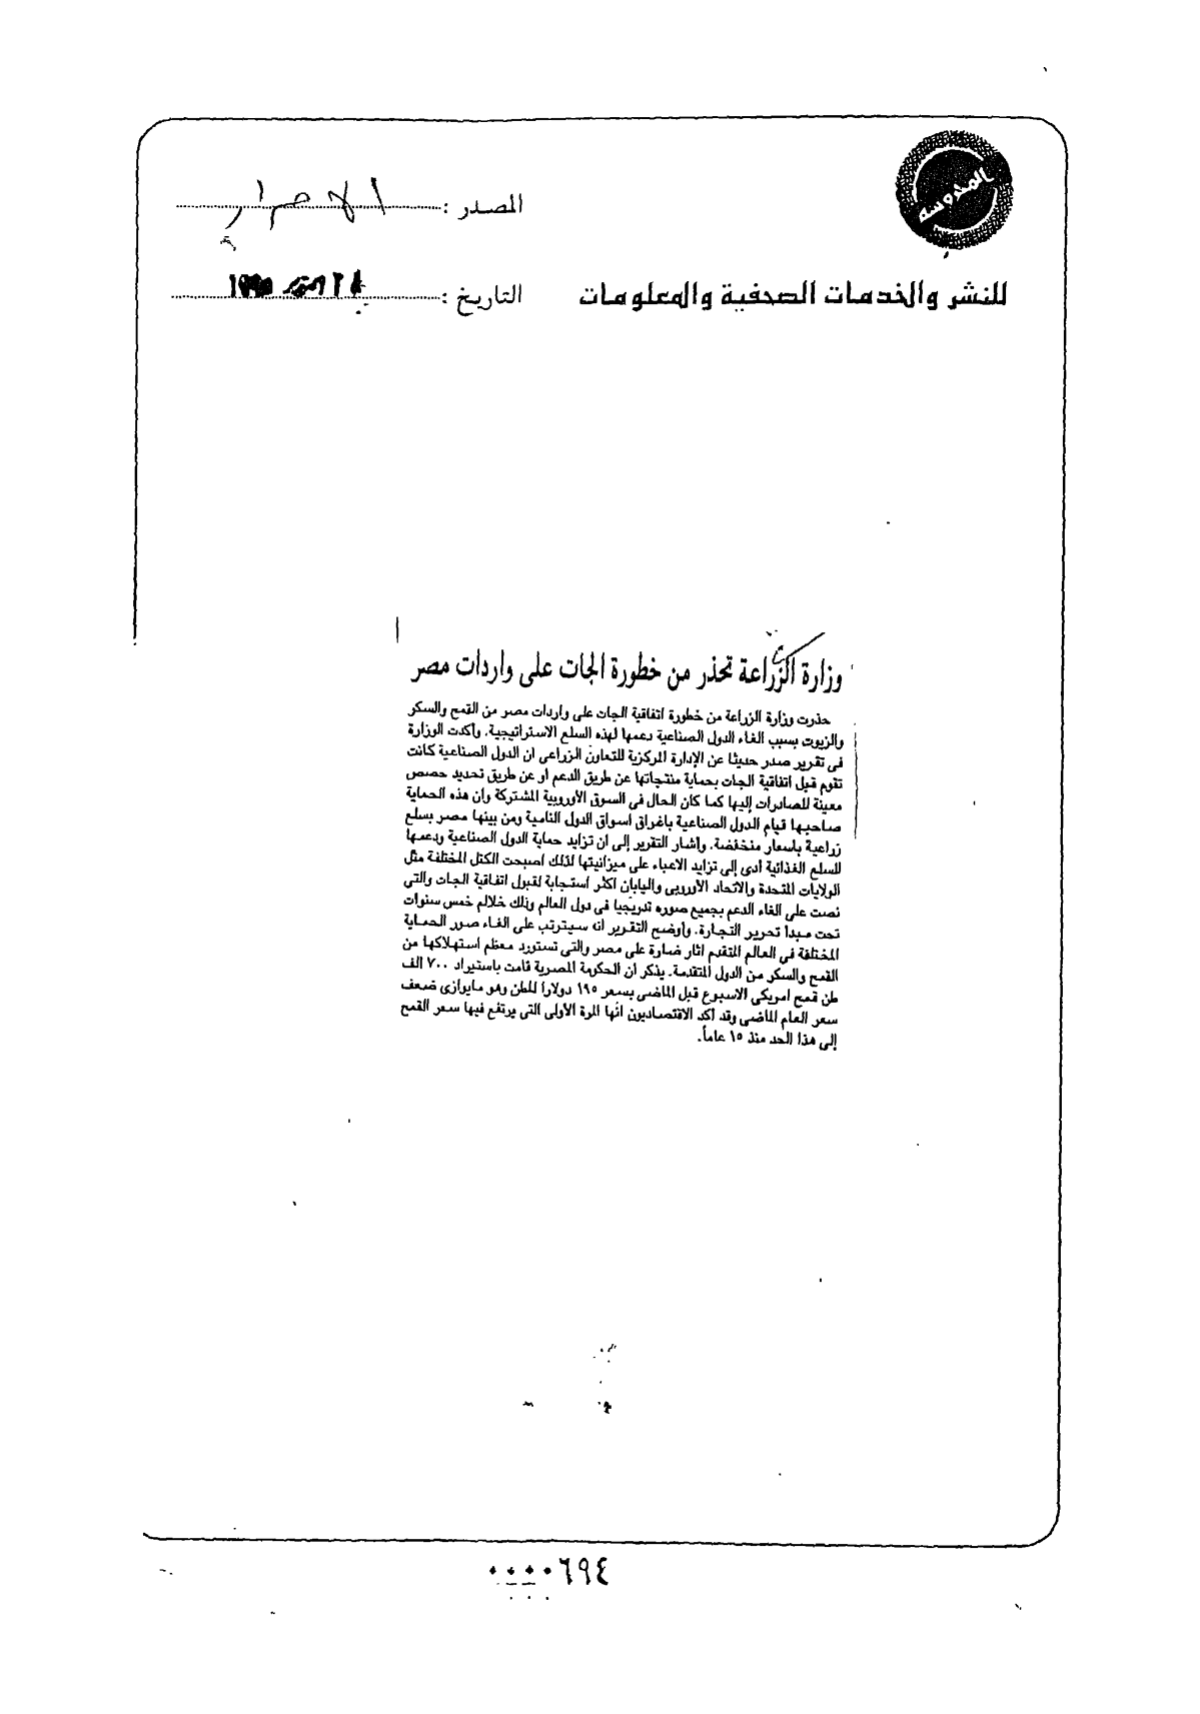 المحروسة
المصدر : الاحرار
للنشر والخدمات الصحفية والمعلومات
التاريخ : ١٩٩٥
وزارة الزراعة تحذر من خطورة الجات على واردات مصر
حذرت وزارة الزراعة من خطورة اتفاقية الجات على واردات مصر من القمح والسكر
والزيوت بسبب الغاء الدول الصناعية دعمها لهذه السلع الاستراتيجية. وأكدت الوزارة
فى تقرير صدر حديثا عن الإدارة المركزية للتعاون الزراعى ان الدول الصناعية كانت
تقوم قبل اتفاقية الجات بحماية منتجاتها عن طريق الدعم او عن طريق تحديد حصص
معينة للصادرات إليها كما كان الحال فى السوق الأوروبية المشتركة وان هذه الحماية
صاحبها قيام الدول الصناعية باغراق اسواق الدول النامية ومن بينها مصر بسلع
زراعية بأسعار منخفضة. وأشار التقرير إلى ان تزايد حماية الدول الصناعية ودعمها
للسلع الغذائية أدى إلى تزايد الاعباء على ميزانيتها لذلك اصبحت الكتل المختلفة مثل
الولايات المتحدة والاتحاد الأوروبى واليابان اكثر استجابة لقبول اتفاقية الجات والتي
نصت على الغاء الدعم بجميع صوره تدريجيا فى دول العالم وذلك خلالم خمس سنوات
تحت مبدا تحرير التجارة. وأوضح التقرير انه سيترتب على الغاء صور الحماية
المختلفة فى العالم المتقدم اثار ضارة على مصر والتى تستورد معظم استهلاكها من
القمح والسكر من الدول المتقدمة. يذكر ان الحكومة المصرية قامت باستيراد ٧٠٠ الف
طن قمح امريكى الاسبوع قبل الماضى بسعر ١٩٥ دولارا للطن وهو مايوازى ضعف
سعر العام الماضى وقد اكد الاقتصاديون انها المرة الأولى التى يرتفع فيها سعر القمح
إلى هذا الحد منذ ١٥ عاماً.
٠٠٠٠٦٩٤